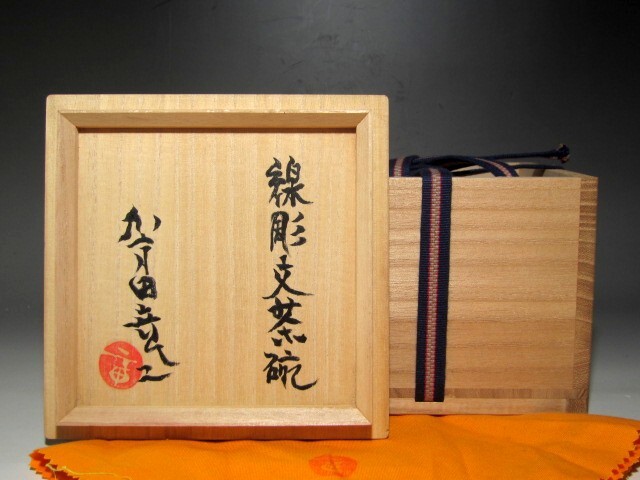 線彫文茶碗
加守田章二